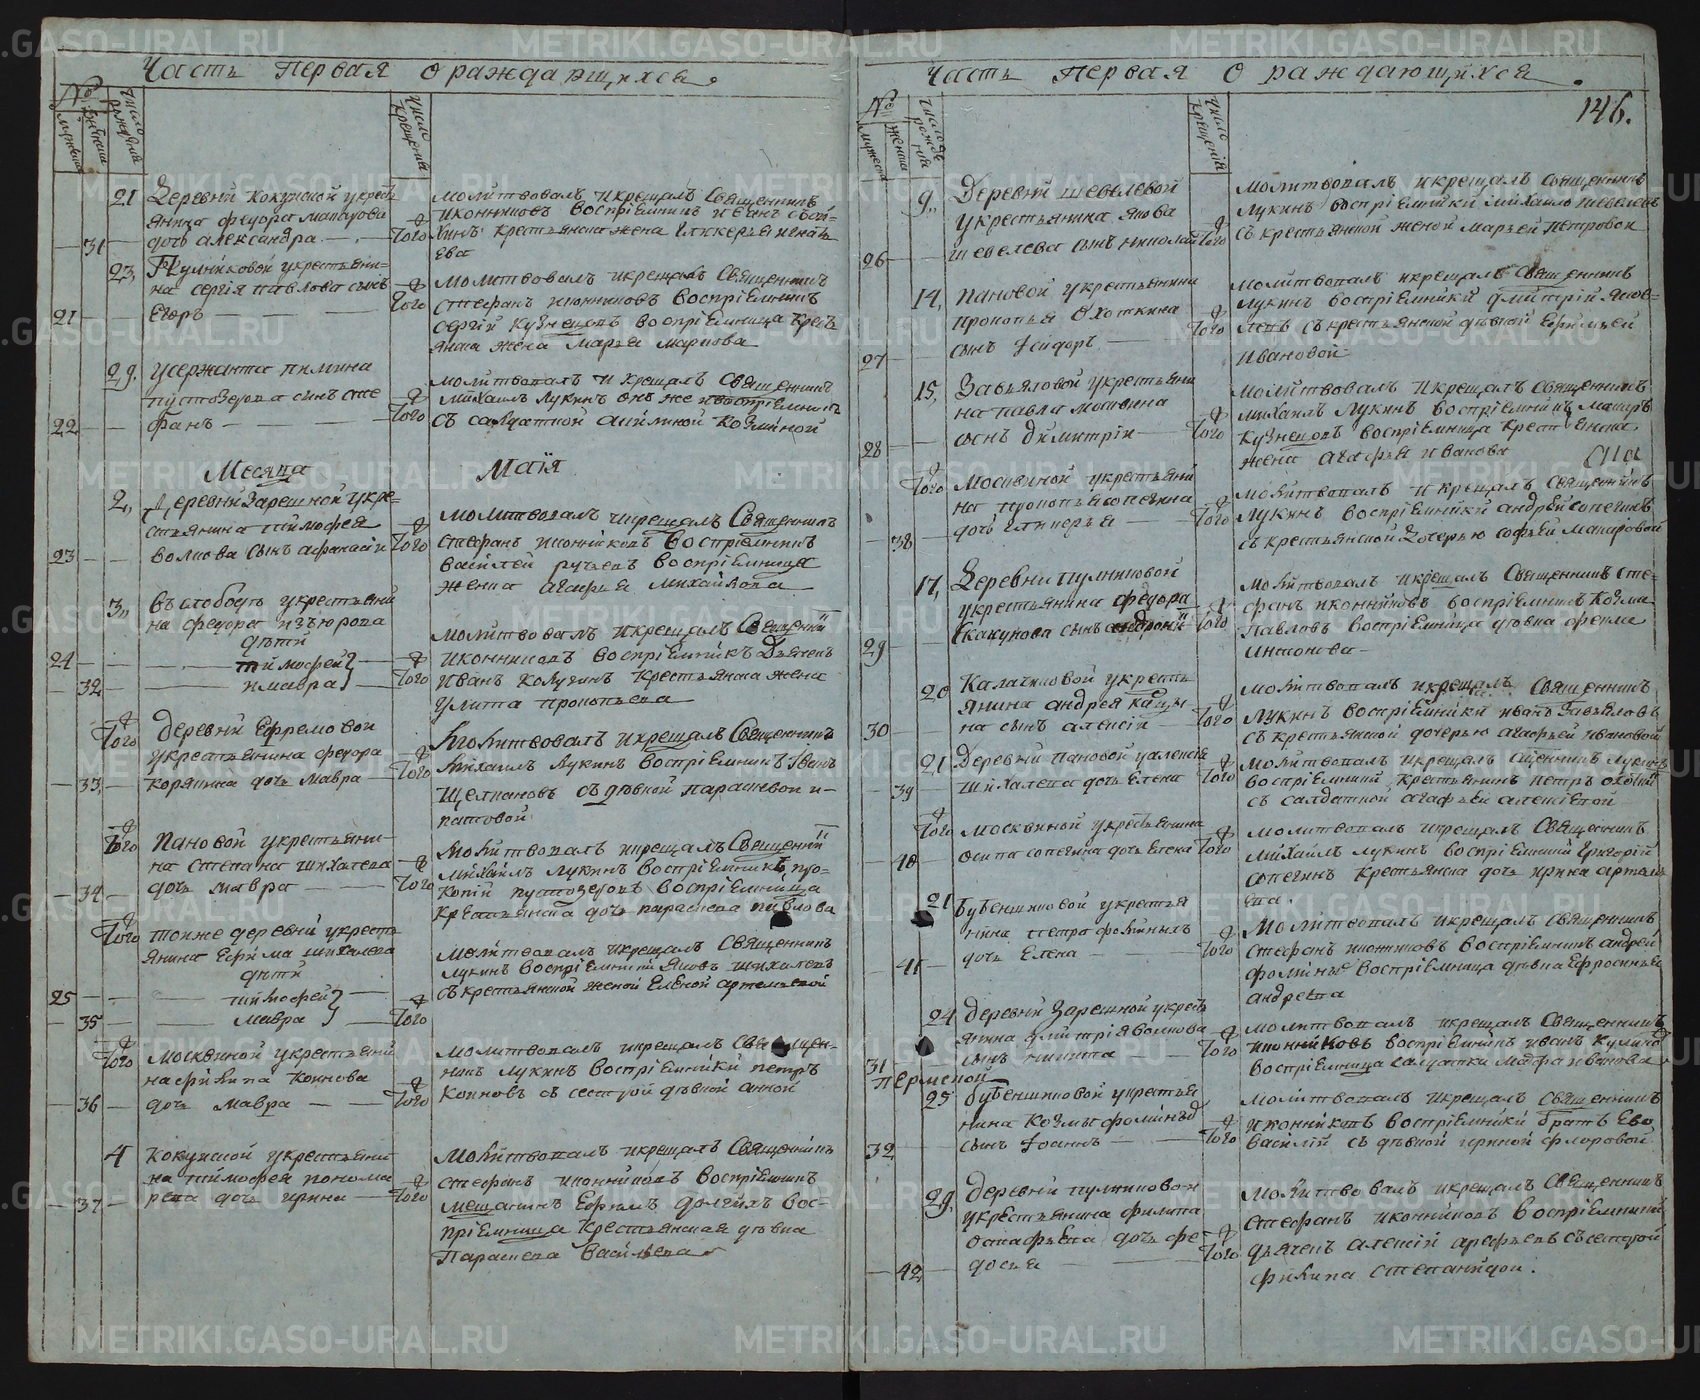 Часть Первая О раждающихся.
№
мужеска
женска
число рожденія
число крещенія
21 Деревни Кокуйской у крестъ
янина Федора Макарова
31 дочь Александра
Того
молитвовалъ и крещалъ Священникъ
Иконниковъ воспріемникъ Иванъ
крестьянска жена Гликерья Игнать
ева
23, Пульниковой у крестьяни-
на Сергія Павлова сынъ
21 Егоръ
Того
Молитвовалъ и крещалъ Священникъ
Стефанъ Иконниковъ Воспріемникъ
Сергій Кузнецовъ воспріемница крестъ
янска жена Марья Маркова
29. У сержанта Пимина
Пустозерова сынъ Сте
22 фанъ
Того
Молитвовалъ и крещалъ Священникъ
Михаилъ Лукинъ онъ же и воспріемникъ
съ салдаткой Акилиной Козминой
Месяца Маія
2, Деревни Зарешной у кре-
стьянина Тимофея
23 Волкова сынъ Афанасіи
Того
Молитвовалъ и крещалъ Священникъ
Стефанъ Иконниковъ Воспріемникъ
Василей Ручьевъ Воспріемница
жена Агафья Михайлова
3,, въ слободѣ у крестьяни
на Федора Изъюрова
дѣти
24 Тимофей
32 и Мавра
Того
Молитвовалъ и крещалъ Священни
Иконниковъ воспріемникъ Дьячекъ
Иванъ Кокушинъ крестьянска жена
Улита Прокопьева
Того Деревни Ефремовои
у крестьянина Федора
33, Корякина дочь Мавра
Того
Молитвовалъ и крещалъ Священникъ
Михаилъ Лукинъ Воспріемникъ Іванъ
Щелкановъ съ дѣвкой Парасковои И-
патовой
Того Пановой у крестьяни-
на Степана Шихалева
34 дочь Мавра
Того
Молитвовалъ и крещалъ Священни
Михаилъ Лукинъ Воспріемникъ Про-
копій Пустозеровъ Воспріемница
Крестьянска дочь Параскева Павлова
Того Той же деревни у крестъ
янина Ефима Шихалева
дѣти
25 Тимофей
35 Мавра
Того
Молитвовалъ и крещалъ Священникъ
Лукинъ Воспріемники Яковъ Шихалевъ
съ крестьянской женой Еленой Артемьевой
Того Москвиной у крестьяни
на Филипа Коннова
36 дочь Мавра
Того
Молитвовалъ и крещалъ Священ-
никъ Лукинъ Воспріемники Петръ
Конновъ съ сестрой дѣвкой Анной
4 Кокуйской у крестьяни
на Тимофея Понома
37 рева дочь Ирина
Того
Молитвовалъ и крещалъ Священникъ
Стефанъ Иконниковъ Воспріемникъ
мещанинъ Ефимъ Долгихъ Вос-
пріемница Крестьянская дѣвка
Парасковья Васильева
Часть Первая О раждающихся.
146.
№
мужеска
женска
число рожденія
число крещенія
9,, Деревни Шевелевой
у крестьянина Якова
26 Шевелева сынъ Николай
Того
Молитвовалъ и крещалъ Священникъ
Лукинъ Воспріемники Михайло Шевелевъ
съ крестьянской женой Марьей Петровои
14, Пановой у крестьянина
Прокопья Охоткина
27 сынъ Фейдоръ
Того
Молитвовалъ и крещалъ Священникъ
Лукинъ воспріемники Дмитрій Яков-
левъ съ крестьянской дѣвкой Ефимьей
Ивановой
15, Завьяловой у крестьяни
на Павла Москвина
28 сынъ Димитріи
Того
Молитвовалъ и крещалъ Священникъ
Михаилъ Лукинъ воспріемникъ Макаръ
Кузнецовъ воспріемница крестьянска
жена Агафья Иванова
Того Москвиной у крестьяни
на Прокопья Сопегина
38 дочь Гликерья
Того
Молитвовалъ и крещалъ Священникъ
Лукинъ воспріемники Андрей Сопегинъ
съ крестьянской дочерью Софьей Макаровой
17, Деревни Пульниковой
у крестьянина Федора
29 Скакунова сынъ Андроній
Того
Молитвовалъ и крещалъ Священникъ Сте-
фанъ Иконниковъ воспріемникъ Козма
Павловъ воспріемница дѣвка Фекла
Антонова
20 Калачиковой у крестъ
янина Андрея Кащи
30 на сынъ Алексій
Того
Молитвовалъ и крещалъ Священникъ
Лукинъ воспріемники Иванъ Завьяловъ
съ крестьянской дочерью Агафьей Ивановой
21 Деревни Пановой у Алексія
39 Шихалева дочь Елена
Того
Молитвовалъ и крещалъ Сщенникъ Лукинъ
воспріемники крестьянинъ Петръ
съ салдаткой Агафьей Алексіевой
Того Москвиной у крестьянина
40 Осипа Сопегина дочь Елена
Того
Молитвовалъ и крещалъ Священникъ
Михаилъ Лукинъ воспріемники Григорій
Сопегинъ крестьянска дочь Ирина Артемь
ева.
21 Бубеншиковой у крестья
нина Петра Фоминыхъ
41 дочь Елена
Того
Молитвовалъ и крещалъ Священникъ
Стефанъ Иконниковъ воспріемникъ Андрей
Фоминыхъ Воспріемница дѣвка Ефросинья
Андреева
24 Деревни Зарешной у крестъ
янина Дмитрія Волкова
31 сынъ Никита
Того
Молитвовалъ и крещалъ Священникъ
Иконниковъ Воспріемникъ Иванъ
Воспріемница салдатка Марфа Иванова
Пермской
25 Бубеншиковой у крестья
нина Козмы Фоминыхъ
32 сынъ Іоаннъ
Того
Молитвовалъ и крещалъ Священникъ
Иконниковъ Воспріемники братъ Ево
Василій съ дѣвкой Ириной Флоровой
29, Деревни Пульниковои
у крестьянина Филипа
Остафьева дочь Фе-
42 досья
Того
Молитвовалъ и крещалъ Священникъ
Стефанъ Иконниковъ Воспріемники
Дьячекъ Алексій Арефьевъ съ сестрой
Филипа Степанидои.
METRIKI.GASO-URAL.RU